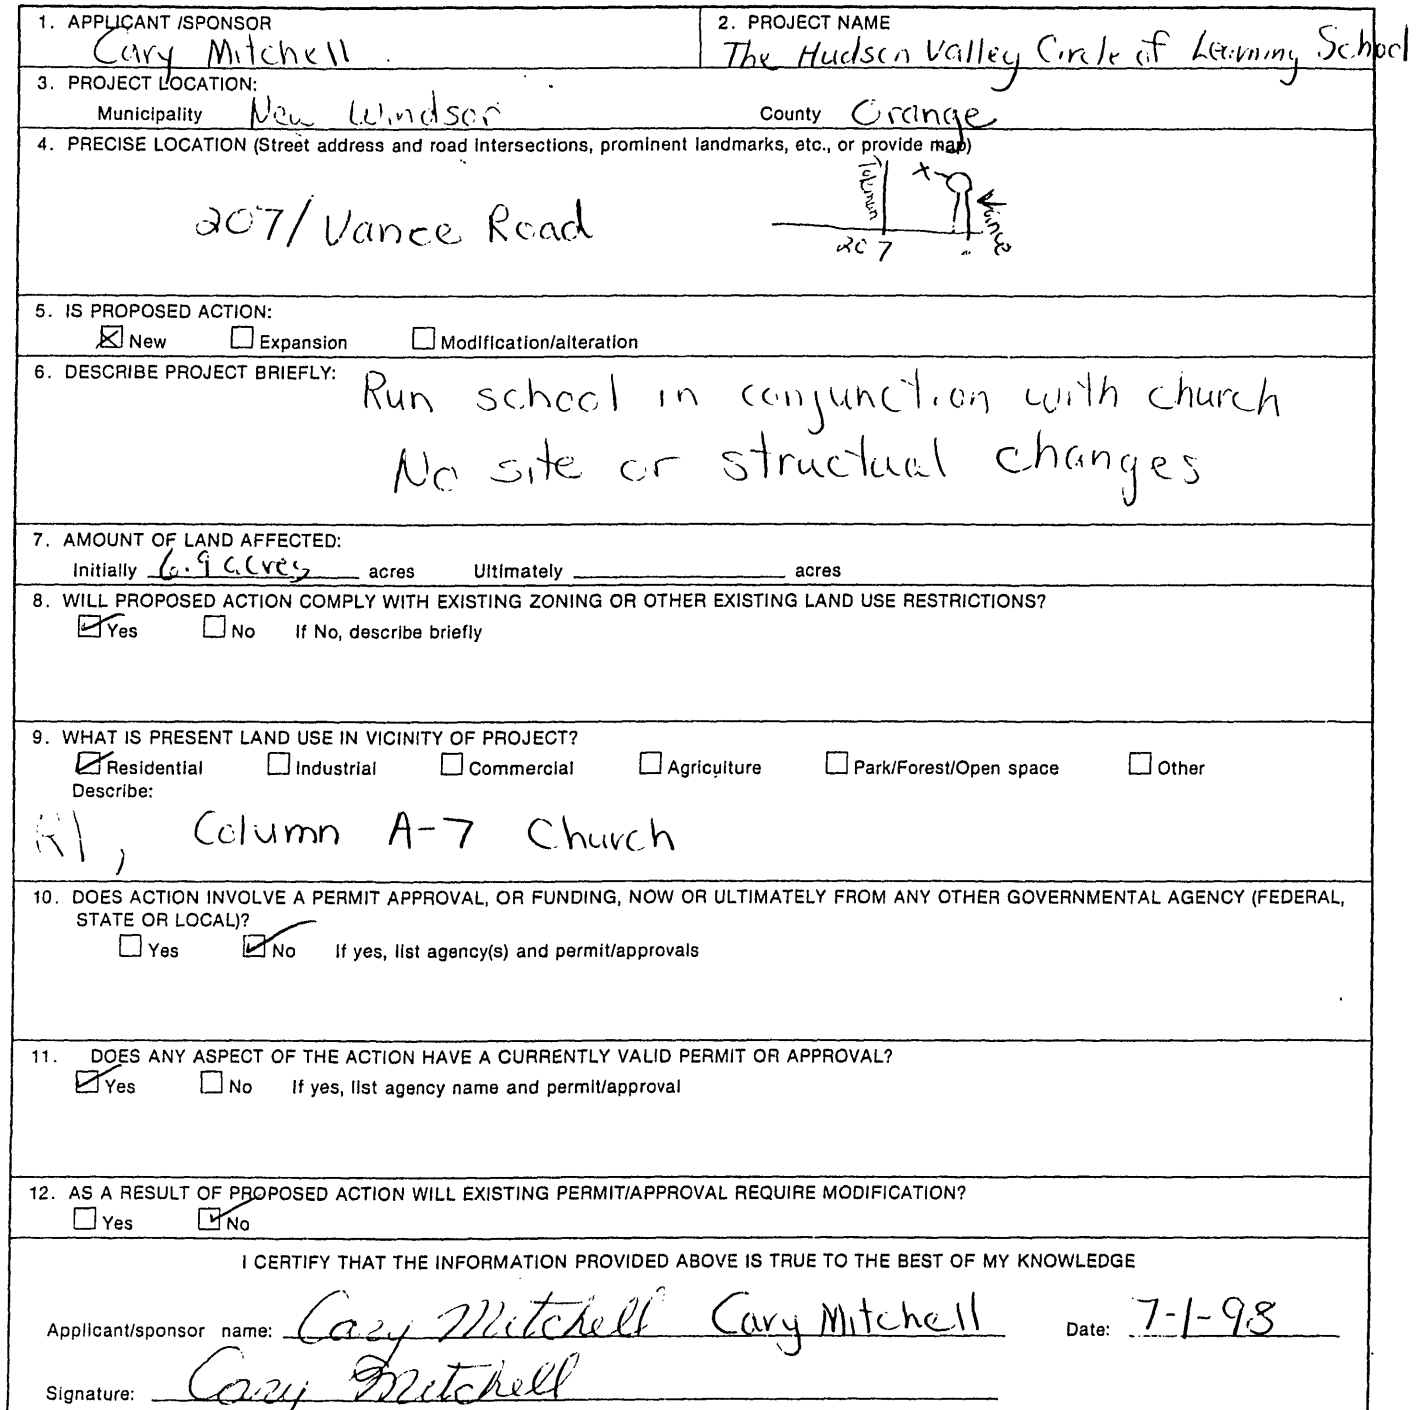 1. APPLICANT /SPONSOR
Cary Mitchell
2. PROJECT NAME
The Hudson Valley Circle of Learning School
3. PROJECT LOCATION:
Municipality New Windsor County Orange
4. PRECISE LOCATION (Street address and road intersections, prominent landmarks, etc., or provide map)
207/Vance Road
X
Vance
207
5. IS PROPOSED ACTION:
New Expansion Modification/alteration
6. DESCRIBE PROJECT BRIEFLY:
Run school in conjunction with church
No site or structual changes
7. AMOUNT OF LAND AFFECTED:
Initially 6.9 acres acres Ultimately acres
8. WILL PROPOSED ACTION COMPLY WITH EXISTING ZONING OR OTHER EXISTING LAND USE RESTRICTIONS?
Yes No If No, describe briefly
9. WHAT IS PRESENT LAND USE IN VICINITY OF PROJECT?
Residential Industrial Commercial Agriculture Park/Forest/Open space Other
Describe:
R1, Column A-7 Church
10. DOES ACTION INVOLVE A PERMIT APPROVAL, OR FUNDING, NOW OR ULTIMATELY FROM ANY OTHER GOVERNMENTAL AGENCY (FEDERAL,
STATE OR LOCAL)?
Yes No If yes, list agency(s) and permit/approvals
11. DOES ANY ASPECT OF THE ACTION HAVE A CURRENTLY VALID PERMIT OR APPROVAL?
Yes No If yes, list agency name and permit/approval
12. AS A RESULT OF PROPOSED ACTION WILL EXISTING PERMIT/APPROVAL REQUIRE MODIFICATION?
Yes No
I CERTIFY THAT THE INFORMATION PROVIDED ABOVE IS TRUE TO THE BEST OF MY KNOWLEDGE
Applicant/sponsor name: Cary Mitchell Cary Mitchell Date: 7-1-98
Signature: Cary Mitchell